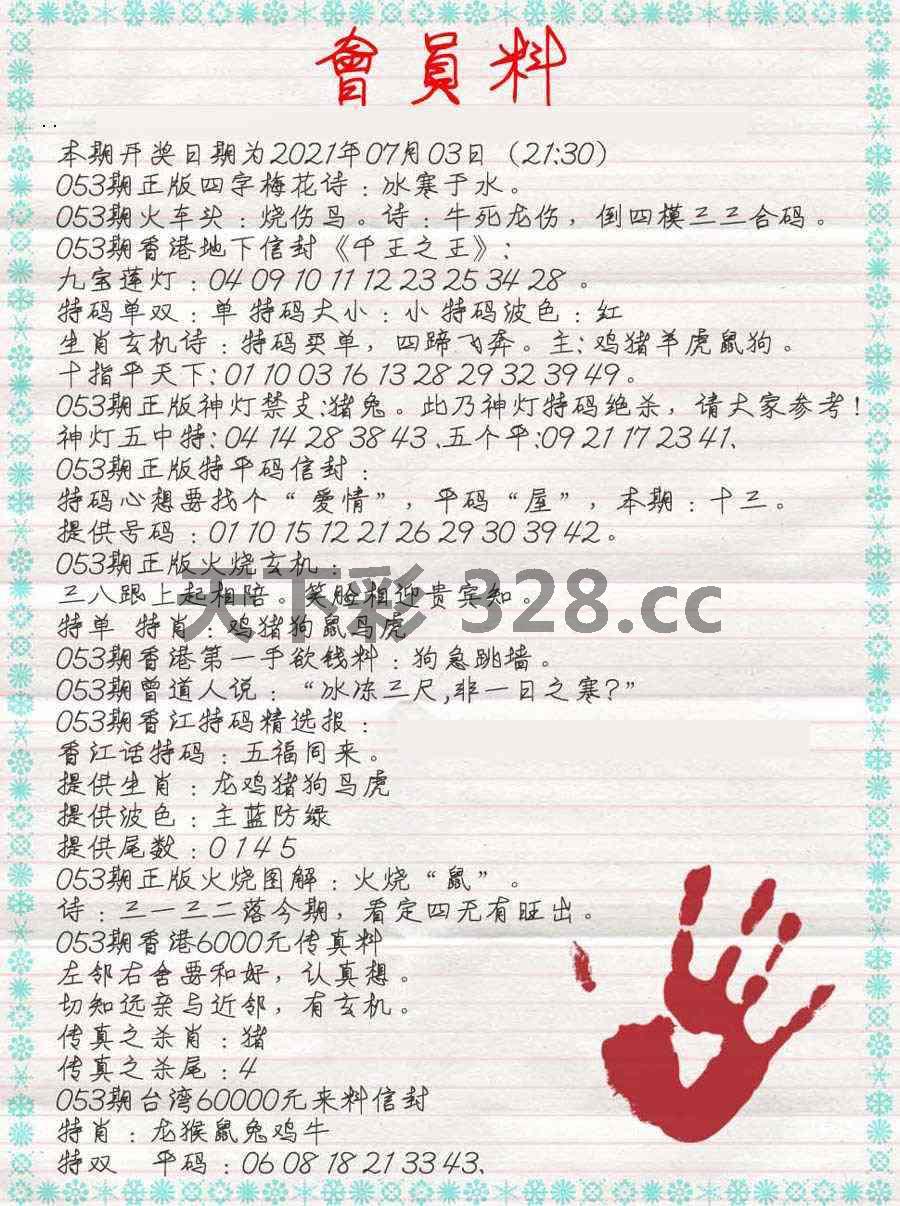 會員料
..
本期开奖日期为2021年07月03日（21:30）
053期正版四字梅花诗：冰寒于水。
053期火车头：烧伤鸟。诗：牛死龙伤，倒四模三三合码。
053期香港地下信封《千王之王》：
九宝莲灯：04 09 10 11 12 23 25 34 28 。
特码单双：单 特码大小：小 特码波色：红
生肖玄机诗：特码买单，四蹄飞奔。主：鸡猪羊虎鼠狗。
十指平天下：01 10 03 16 13 28 29 32 39 49。
053期正版神灯禁支：猪兔。此乃神灯特码绝杀，请大家参考！
神灯五中特：04 14 28 38 43、五个平：09 21 17 23 41、
053期正版特平码信封：
特码心想要找个“爱情”，平码“屋”，本期：十三。
提供号码：01 10 15 12 21 26 29 30 39 42。
053期正版火烧玄机：
三八跟上起相陪。笑脸相迎贵宾知。
天下彩 328.cc
特单 特肖：鸡猪狗鼠马虎
053期香港第一手欲钱料：狗急跳墙。
053期曾道人说：“冰冻三尺,非一日之寒?”
053期香江特码精选报：
香江话特码：五福同来。
提供生肖：龙鸡猪狗马虎
提供波色：主蓝防绿
提供尾数：0 1 4 5
053期正版火烧图解：火烧“鼠”。
诗：三一三二落今期，看定四无有旺出。
053期香港6000元传真料
左邻右舍要和好，认真想。
切知远亲与近邻，有玄机。
传真之杀肖：猪
传真之杀尾：4
053期台湾60000元来料信封
特肖：龙猴鼠兔鸡牛
特双 平码：06 08 18 21 33 43、